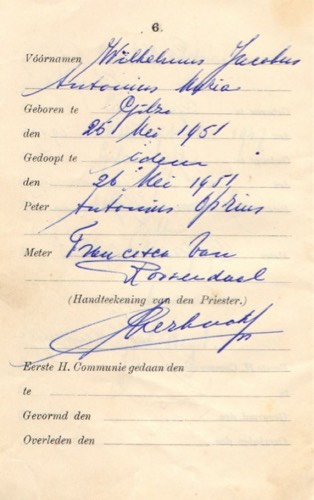 6.
Vóórnamen Wilhelmus Jacobus
Antonius Maria
Geboren te Gilze
den 25 Mei 1951
Gedoopt te idem
den 26 Mei 1951
Peter Antonius
Meter Francisca Van
Roosendaal
(Handteekening van den Priester.)
Eerste H. Communie gedaan den
te
Gevormd den
Overleden den